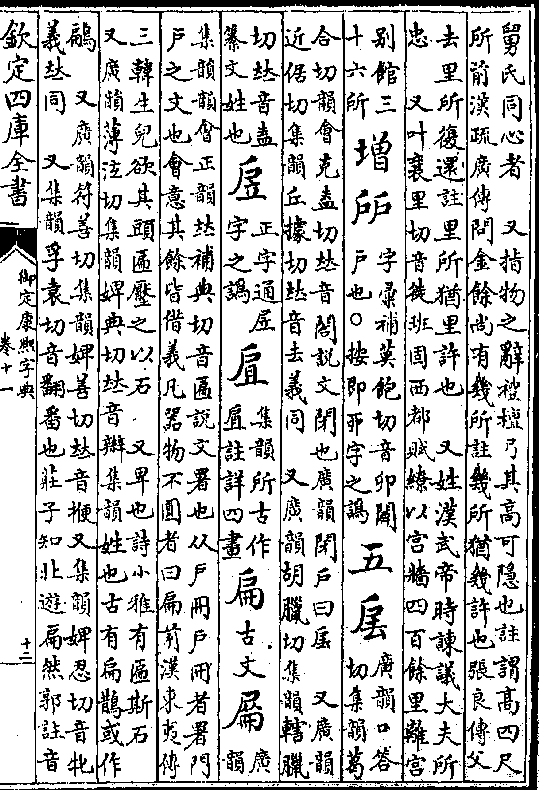 舅氏同心者 又指物之辭禮檀弓其高可隱也註謂高四尺
所前漢疏廣傳問金餘尚有幾所註幾所猶幾許也張良傳父
去里所復還註里所猶里許也 又姓漢武帝時諫議大夫所
忠 又叶襄里切音徙班固西都賦繚以宮牆四百餘里離宮
别館三
十六所
增
字彙補莫飽切音卯闢
戶也○按即丣字之譌
五
廣韻口答
切集韻葛
合切韻會克盍切𠀤音閤說文閉也廣韻閉戶曰 又廣韻
近倨切集韻丘據切𠀤音去義同 又廣韻胡臘切集韻轄臘
切𠀤音盍
纂文姓也
正字通
字之譌
集韻所古作
註詳四畫
扁古文
廣
韻
集韻韻會正韻𠀤補典切音匾說文署也从戶冊戶冊者署門
戶之文也會意其餘皆借義凡器物不圓者曰扁前漢東夷傳
三韓生兒欲其頭匾壓之以石 又卑也詩小雅有匾斯石
又廣韻薄泫切集韻婢典切𠀤音辮集韻姓也古有扁鵲或作
鶣 又廣韻符善切集韻婢善切𠀤音楩又集韻婢忍切音牝
義𠀤同 又集韻孚袁切音翻番也莊子知北遊扁然郭註音
欽定四庫全書
御定康熙字典
卷十一
十二